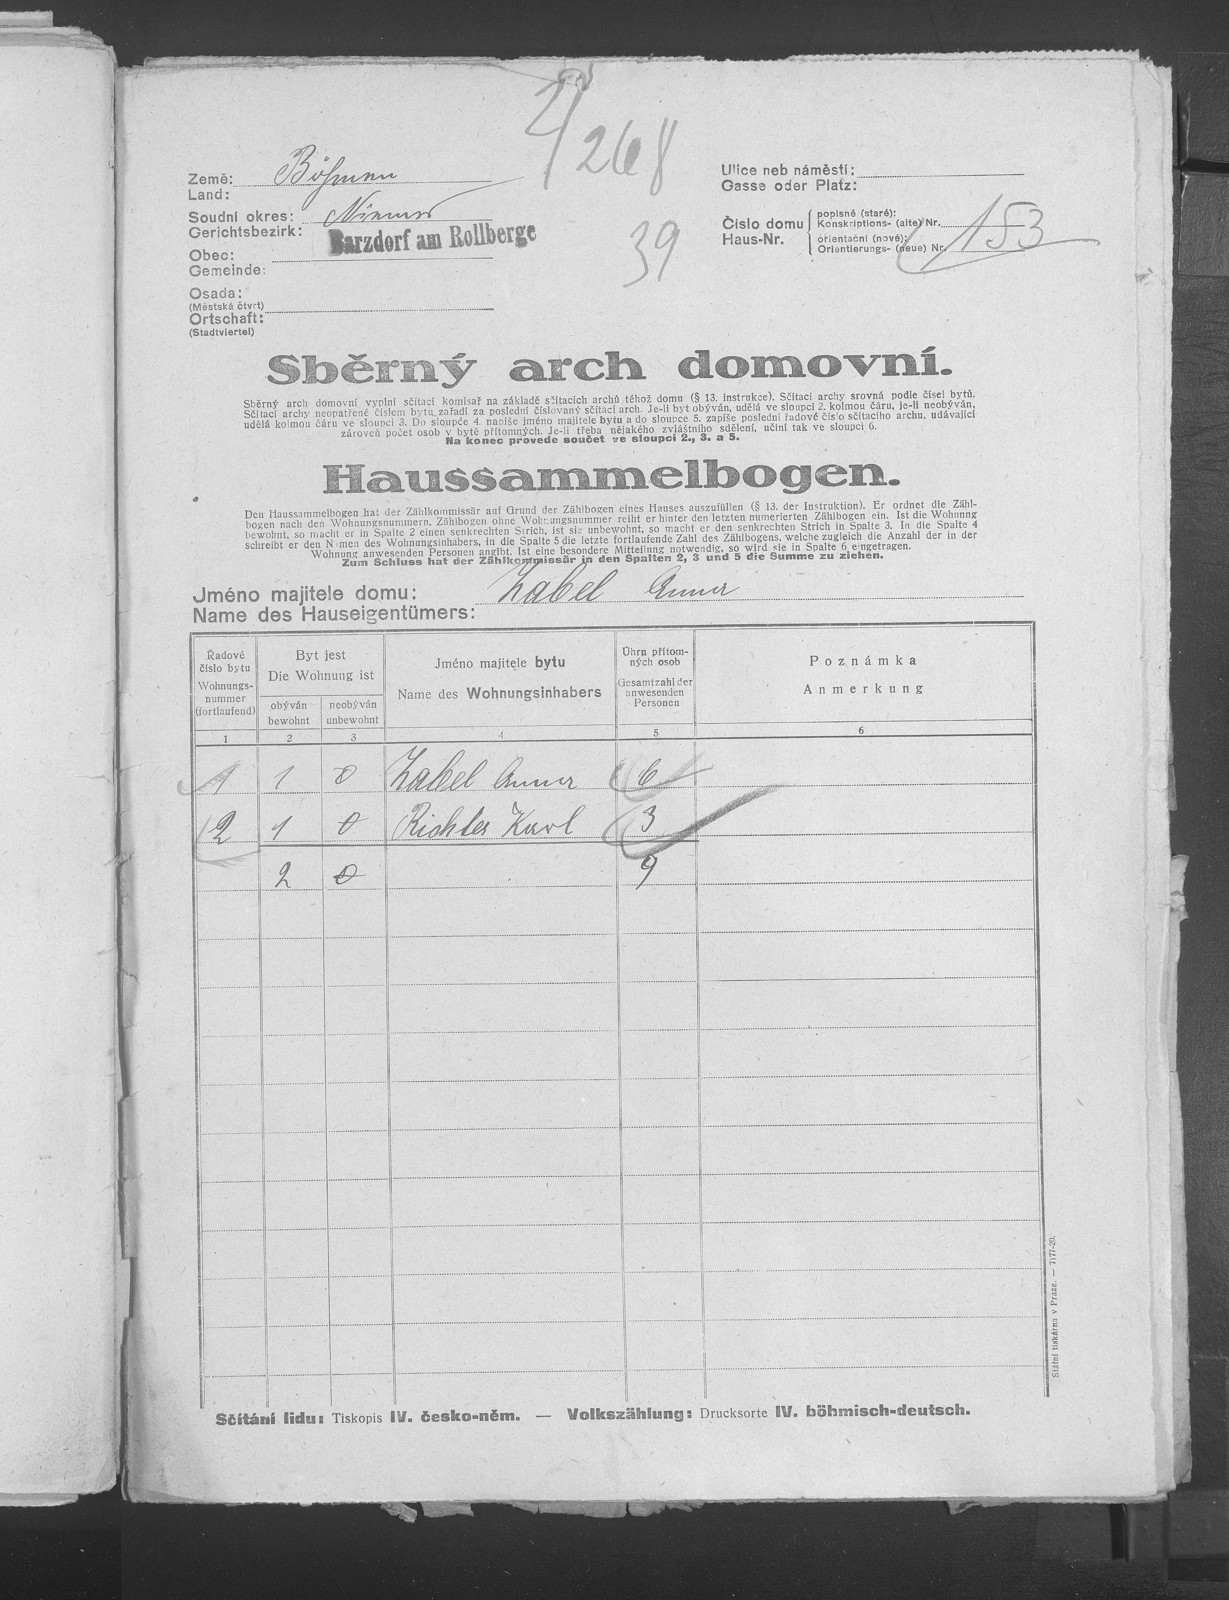 268
39
Země: Böhmen
Land:
Soudní okres: Niemes
Gerichtsbezirk:
Barzdorf am Rollberge
Obec:
Gemeinde:
Osada:
(Městská čtvrt)
Ortschaft:
(Stadtviertel)
Ulice neb náměstí:
Gasse oder Platz:
Číslo domu
Haus-Nr.
popisné (staré):
Konskriptions- (alte) Nr.
orientační (nové):
Orientierungs- (neue) Nr.
153
Sběrný arch domovní.
Sběrný arch domovní vyplní sčítací komisař na základě sčítacích archů téhož domu (§ 13. instrukce). Sčítací archy srovná podle čísel bytů.
Sčítací archy neopatřené číslem bytu zařadí za poslední číslovaný sčítací arch. Je-li byt obýván, udělá ve sloupci 2. kolmou čáru, je-li neobýván,
udělá kolmou čáru ve sloupci 3. Do sloupce 4. napíše jméno majitele bytu a do sloupce 5. zapíše poslední řadové číslo sčítacího archu, udávající
zároveň počet osob v bytě přítomných. Je-li třeba nějakého zvláštního sdělení, učiní tak ve sloupci 6.
Na konec provede součet ve sloupci 2., 3. a 5.
Haussammelbogen.
Den Haussammelbogen hat der Zählkommissär auf Grund der Zählbogen eines Hauses auszufüllen (§ 13. der Instruktion). Er ordnet die Zähl-
bogen nach den Wohnungsnummern. Zählbogen ohne Wohnungsnummer reiht er hinter den letzten numerierten Zählbogen ein. Ist die Wohnung
bewohnt, so macht er in Spalte 2 einen senkrechten Strich, ist sie unbewohnt, so macht er den senkrechten Strich in Spalte 3. In die Spalte 4
schreibt er den Namen des Wohnungsinhabers, in die Spalte 5 die letzte fortlaufende Zahl des Zählbogens, welche zugleich die Anzahl der in der
Wohnung anwesenden Personen angibt. Ist eine besondere Mitteilung notwendig, so wird sie in Spalte 6 eingetragen.
Zum Schluss hat der Zählkommissär in den Spalten 2, 3 und 5 die Summe zu ziehen.
Jméno majitele domu: Zabel Anna
Name des Hauseigentümers:
Řadové číslo bytu
Wohnungs-nummer (fortlaufend)
Byt jest
Die Wohnung ist
obýván
bewohnt
neobýván
unbewohnt
Jméno majitele bytu
Name des Wohnungsinhabers
Úhrn přítom-ných osob
Gesamtzahl der anwesenden Personen
Poznámka
Anmerkung
1 2 3 4 5 6
1 1 0 Zabel Anna 6
2 1 0 Richter Karl 3
2 0 9
Státní tiskárna v Praze. — 7177-20.
Sčítání lidu: Tiskopis IV. česko-něm. — Volkszählung: Drucksorte IV. böhmisch-deutsch.